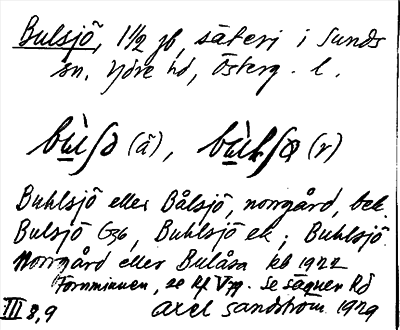 Bulsjö, 1 1/2 gb, säteri i Sunds
sn. Ydre hd, Österg. l.
bùʃə (ä), bùlʃø (r)
Buhlsjö eller Bålsjö, norrgård, bek.
Bulsjö G36, Buhlsjö ek; Buhlsjö
Norrgård eller Bulåsa kb 1922
Fornminnen, se Rf V. Se sägner Rö
III 8,9 Axel Sandström 1929